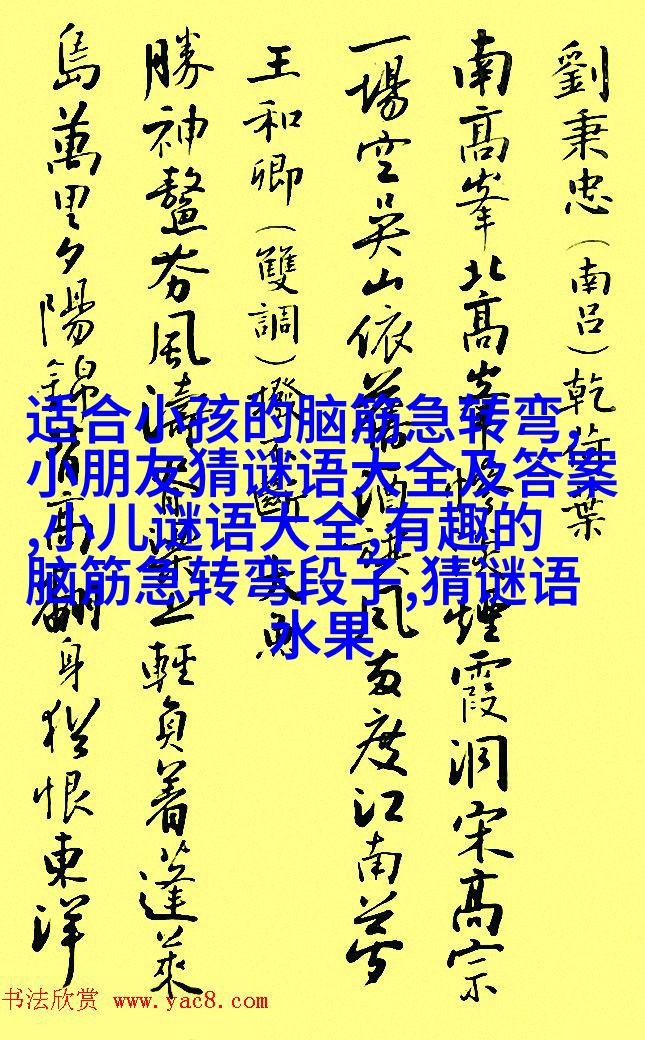 劉秉忠(南呂)乾荷葉
南高峯北高峯慘煙霞洞宋高宗
一場空吴山依舊酒旗風两度江南夢
王和卿(雙調)撥不斷大魚
勝神鰲夯風濤脊梁上輕負着蓬萊
島萬里夕陽錦背高翻身猶恨東洋
适合小孩的脑筋急转弯,
小朋友猜谜语大全及答案
,小儿谜语大全,有趣的
脑筋急转弯段子,猜谜语
水果
书法欣赏 www.yac8.com